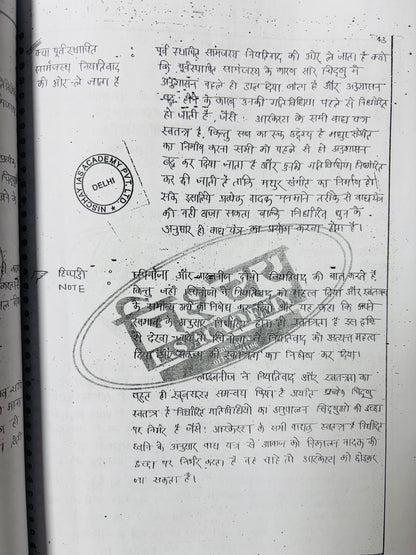 43
क्या पूर्वस्थापित
सामंजस्य नियतिवाद
की ओर ले जाता है
पूर्व स्थापित सामंजस्य नियतिवाद की ओर ले जाता है क्यो
कि पूर्वस्थापित सामंजस्य के कारण सारे चिद्णु में
अनुशासन पहले ही डाल दिया जाता है और अनुशासन
बद्ध होने के कारण उनकी गतिविधिया पहले से निर्धारित
हो जाती है, जैसे: आरकेस्ट्रा के सभी वाद्य यंत्र
स्वतन्त्र है, किन्तु सब का एक उद्देश्य है मधुर संगीत
का निर्माण करना सभी को पहले से ही अनुशासन
बद्ध कर दिया जाता है और उनकी गतिविधियां निर्धारित
कर दी जाती है ताकि मधुर संगीत का निर्माण हो।
इसलिए प्रत्येक वादक मनमाने तरीके से वाद्ययंत्र
को नही बजा सकता बल्कि निर्धारित धुन के
अनुसार ही वाद्य यंत्र का प्रयोग करना होगा है।
NISCHAY IAS ACADEMY PVT. LTD.
DELHI
टिप्पणी
NOTE
स्पिनोजा और लाइबनीज दोनो नियतिवाद की बात करते है
किन्तु जहाँ स्पिनोजा ने नियतिवाद को महत्व दिया और स्वतन्त्रता
के सामान्य अर्थ का निषेध कर दिया और यह कहा कि अपने
स्वभाव के अनुसार निर्धारित होना ही स्वतन्त्रता है इस दृष्टि
से देखा जाये तो स्पिनोजा ने नियतिवाद को अत्यन्त महत्व
दिया और संकल्प की स्वतन्त्रता का निषेध कर दिया।
लाइबनीज ने नियतिवाद और स्वतन्त्रता का
बहुत ही खूबसूरत समन्वय किया है अर्थात प्रत्येक चिद्णु
स्वतन्त्र है निर्धारित गतिविधियों का अनुपालन चिद्णुओं की इच्छा
पर निर्भर है जैसे: आरकेस्ट्रा के सभी वादक स्वतन्त्र है निर्धारित
ध्वनि के अनुसार वाद्य यंत्र से आवाज को निकालना वादक की
इच्छा पर निर्भर करता है वह चाहे तो आरकेस्ट्रा को छोडकर
जा सकता है।